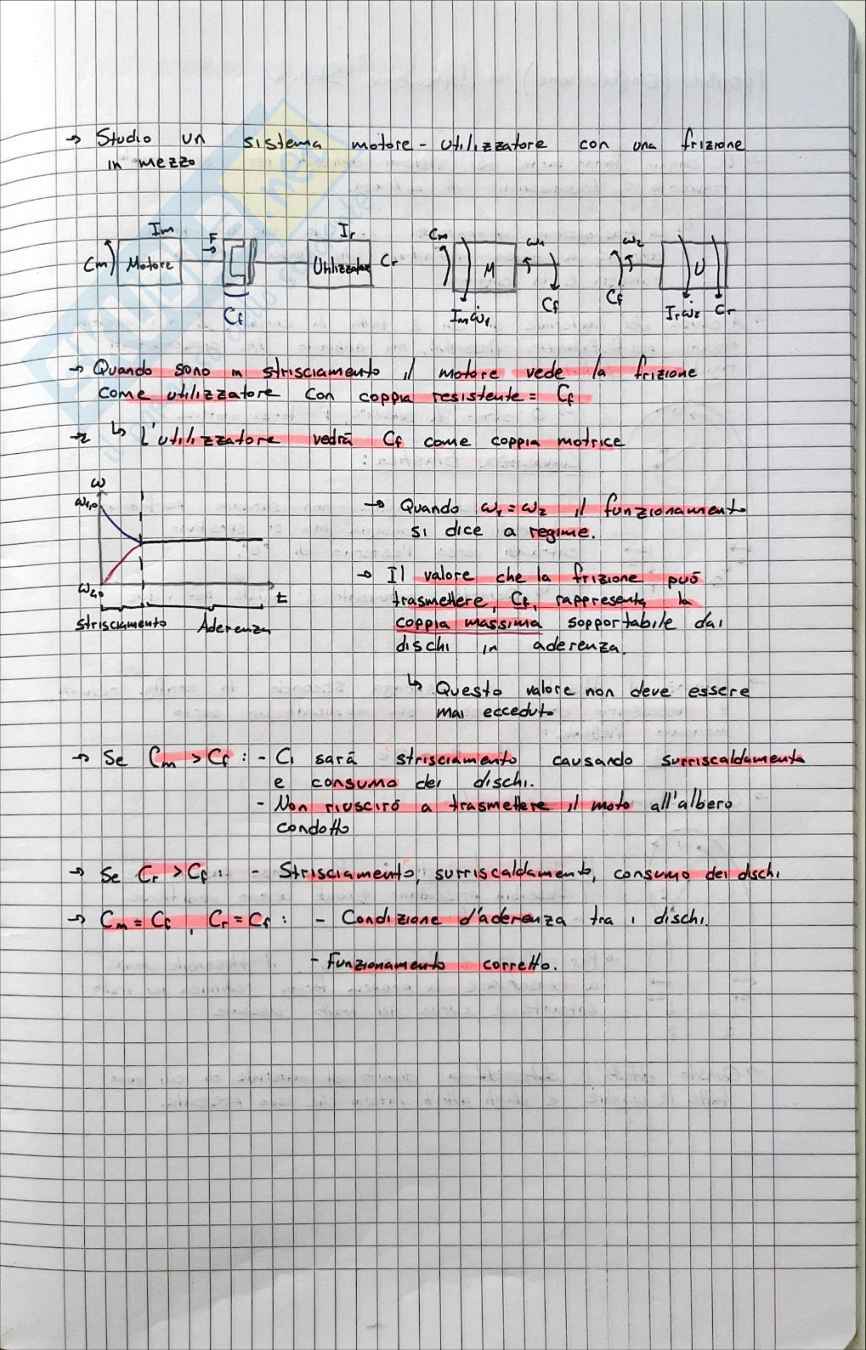 → Studio un sistema motore - utilizzatore con una frizione
in mezzo
Im
Ir
F
Cm
Motore
Utilizzatore
Cr
Cf
Cm
M
ω1
Cf
Imω̇1
ω2
Cf
U
Irω̇2
Cr
→ Quando sono in strisciamento il motore vede la frizione
come utilizzatore con coppia resistente = Cf
↳ L'utilizzatore vedrà Cf come coppia motrice
ω
ω1,0
ω2,0
t
strisciamento Aderenza
→ Quando ω1=ω2 il funzionamento
si dice a regime.
→ Il valore che la frizione può
trasmettere, Cf, rappresenta la
coppia massima sopportabile dai
dischi in aderenza.
↳ Questo valore non deve essere
mai ecceduto
→ Se Cm > Cf : - Ci sarà strisciamento causando surriscaldamento
e consumo dei dischi.
- Non riuscirò a trasmettere il moto all'albero
condotto
→ Se Cr > Cf : - Strisciamento, surriscaldamento, consumo dei dischi
→ Cm = Cf , Cr = Cf : - Condizione d'aderenza tra i dischi.
- Funzionamento corretto.